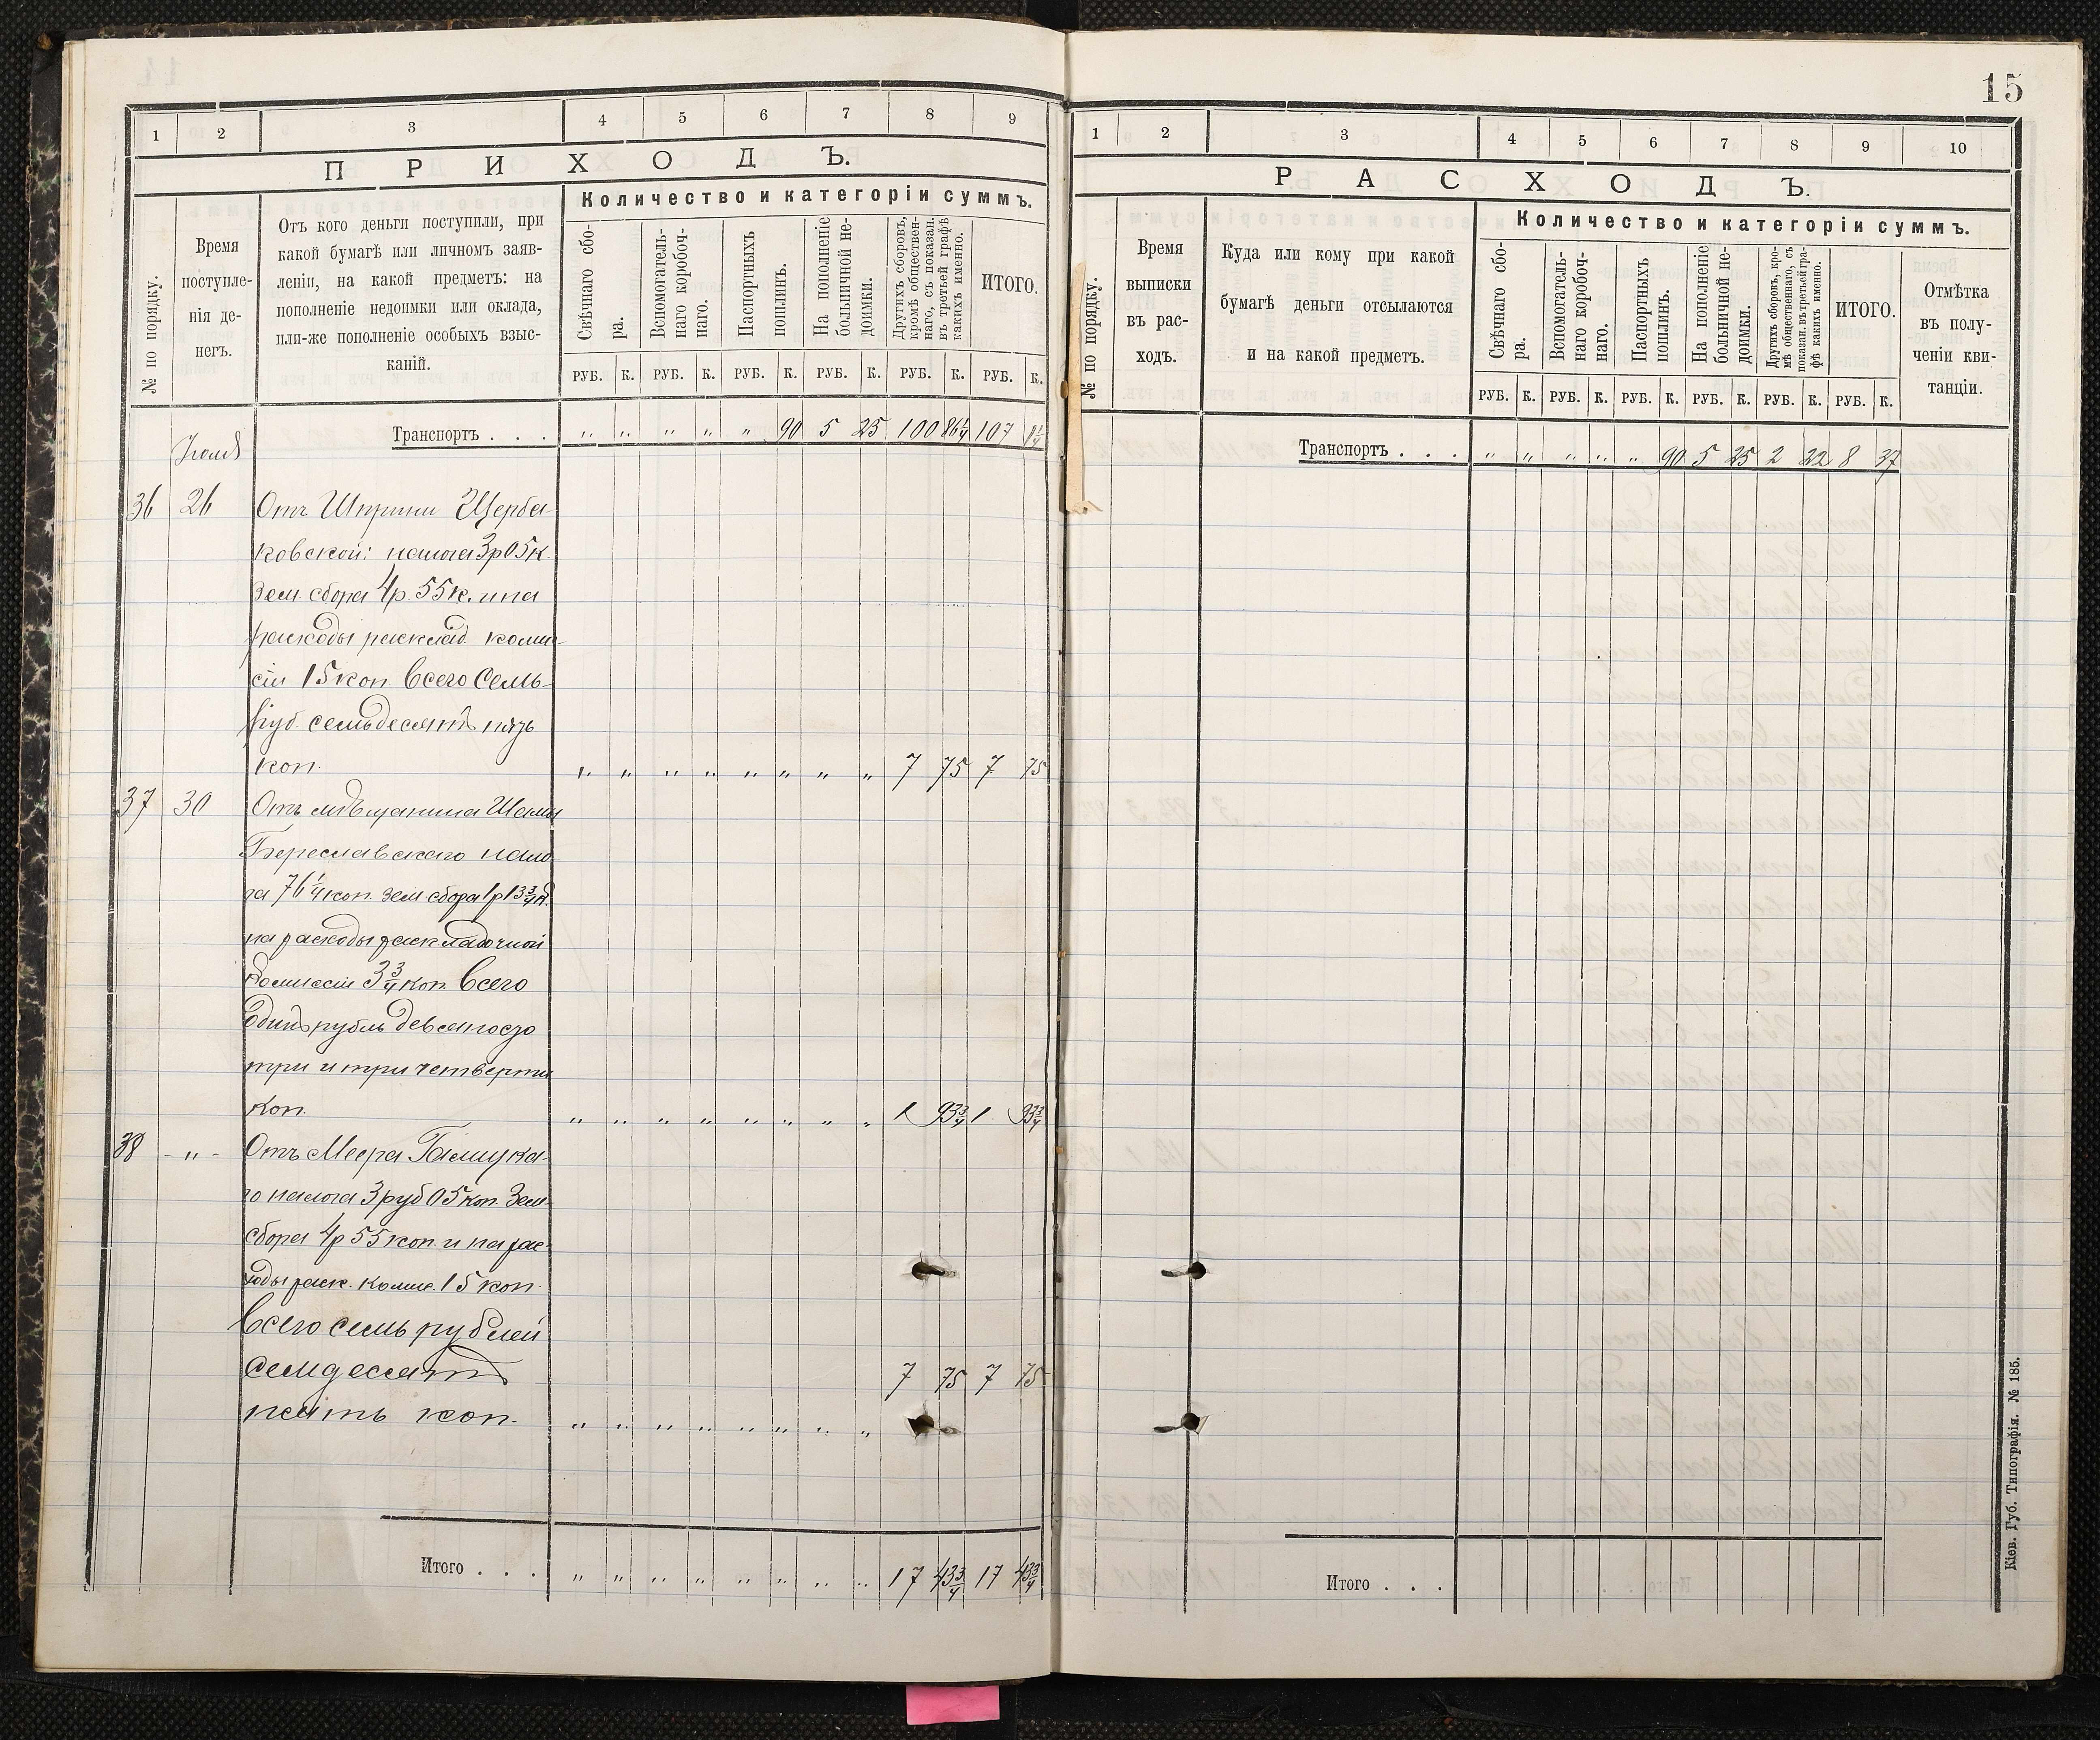 15
1 2 3 4 5 6 7 8 9
ПРИХОДЪ.
№ по порядку.
Время
поступле-
нія де-
негъ.
Отъ кого деньги поступили, при
какой бумагѣ или личномъ заяв-
леніи, на какой предметъ: на
пополненіе недоимки или оклада,
или-же пополненіе особыхъ взыс-
каній.
Количество и категоріи суммъ.
Свѣчнаго сбо-
ра.
Вспомогатель-
наго коробоч-
наго.
Паспортныхъ
пошлинъ.
На пополненіе
больничной не-
доимки.
Другихъ сборовъ,
кромѣ обществен-
наго, съ показан.
въ третьей графѣ
какихъ именно.
ИТОГО.
РУБ. К. РУБ. К. РУБ. К. РУБ. К. РУБ. К. РУБ. К.
Транспортъ . . . " " " " " 90 5 25 100 86¼ 107 1¼
36 26 Отъ Шпринци Щерба-
ковской: налога 3 р 05 к.
Зем. сбора 4 р. 55 к. и на
расходы расклад. коми-
сіи 15 коп. Всего Семь
руб. семьдесятъ пять
коп. " " " " " " " " 7 75 7 75
37 30 Отъ мѣщанина
Береславскаго нало-
га 76¼ коп. Зем сбора 1 р 13¾ к.
на расходы раскладочной
Комиссіи 3¾ коп. Всего
Одинъ рубль девяносто
три и три четверти
коп. " " " " " " " " 1 93¾ 1 93¾
38 - " - Отъ Меера
го налога 3 руб 05 коп. Зем
сбора 4 р 55 коп. и на рас-
ходы раск. комис. 15 коп.
Всего семь рублей
семдесятъ 7 75 7 75
пять коп. " " " " " " " "
Итого . . . " " " " " " " " 17 43¾ 17 43¾
1 2 3 4 5 6 7 8 9 10
РАСХОДЪ.
№ по порядку.
Время
выписки
въ рас-
ходъ.
Куда или кому при какой
бумагѣ деньги отсылаются
и на какой предметъ.
Количество и категоріи суммъ.
Свѣчнаго сбо-
ра.
Вспомогатель-
наго коробоч-
наго.
Паспортныхъ
пошлинъ.
На пополненіе
больничной не-
доимки.
Другихъ сборовъ, кро-
мѣ общественнаго, съ
показан. въ третьей гра-
фѣ какихъ именно.
ИТОГО.
Отмѣтка
въ полу-
ченіи кви-
танціи.
РУБ. К. РУБ. К. РУБ. К. РУБ. К. РУБ. К. РУБ. К.
Транспортъ . . . " " " " " 90 5 25 2 22 8 37
Итого . . .
Кіев. Губ. Типографія. № 185.